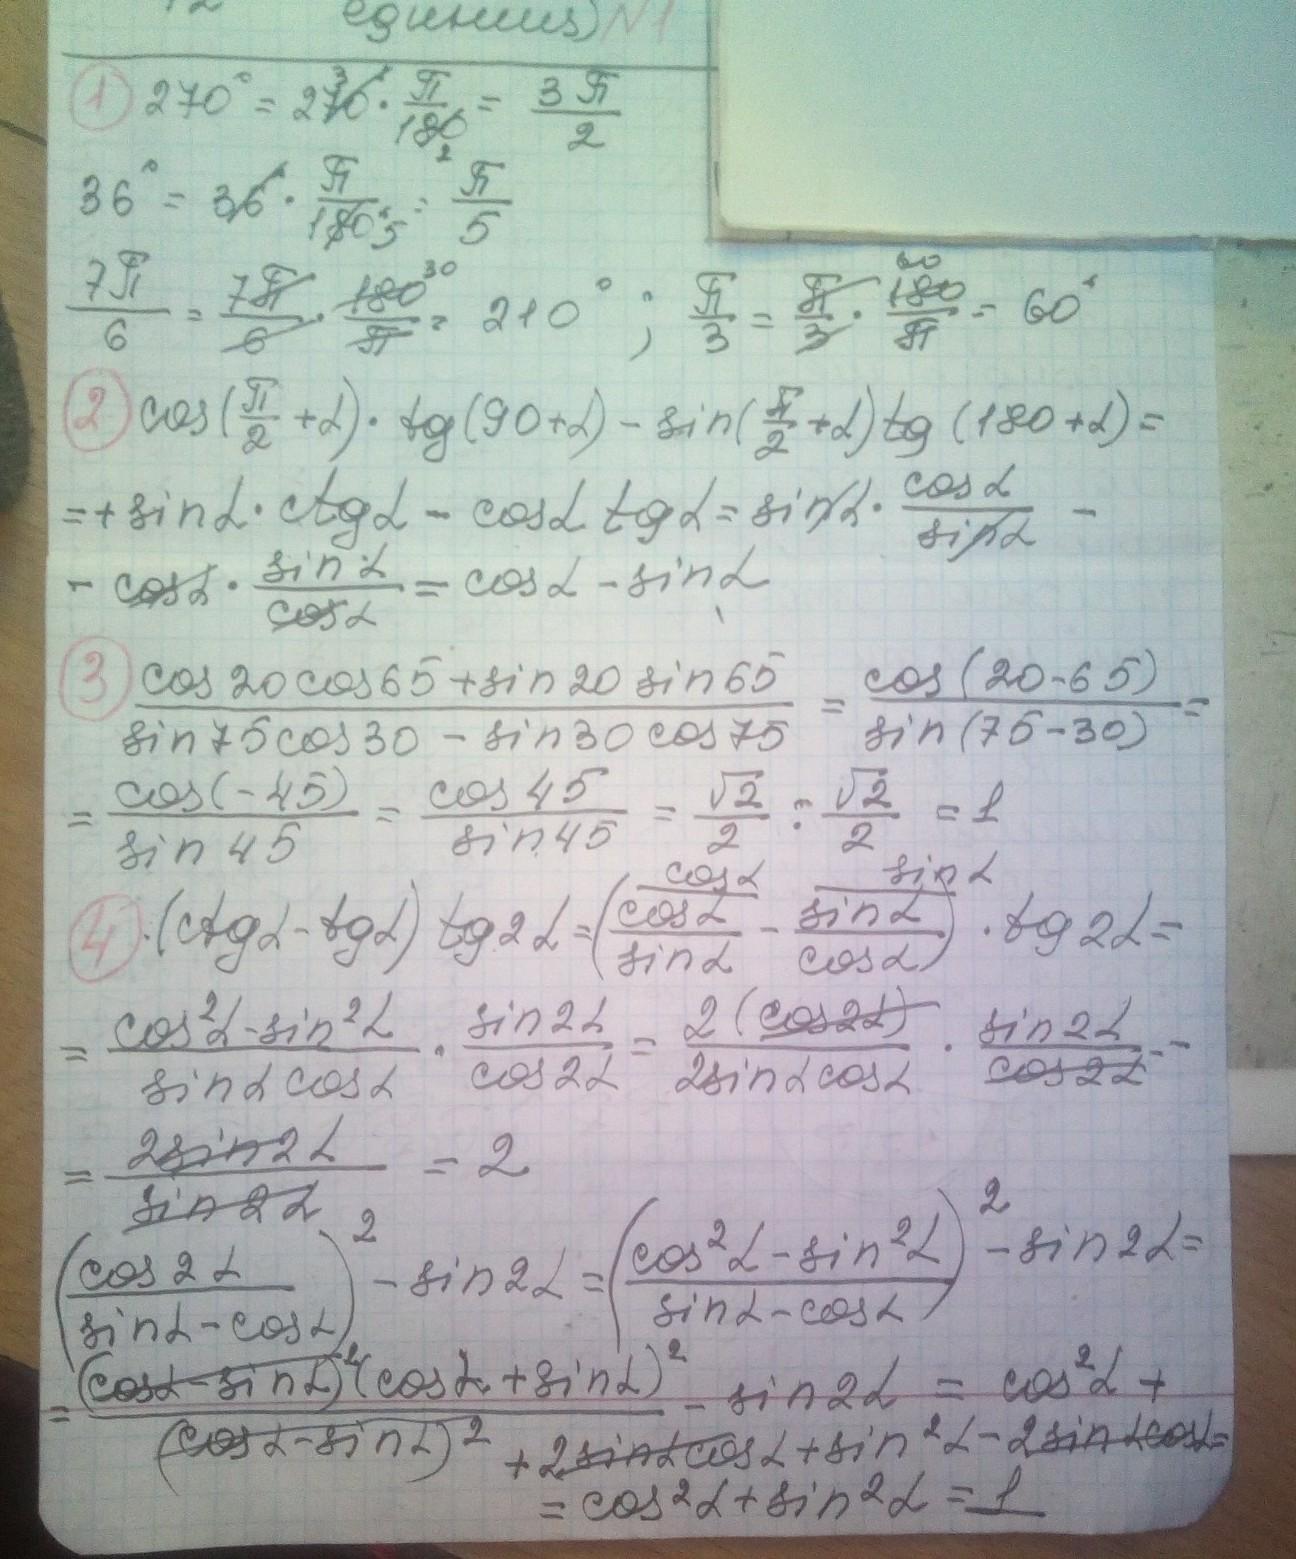 12 единиц) №1
① 270° = 270³ · π/180₂ = 3π/2
36° = 36¹ · π/180₅ = π/5
7π/6 = 7π/6 · 180³⁰/π = 210° ; π/3 = π/3 · 180⁶⁰/π = 60°
② cos(π/2 + α) · tg(90+α) − sin(π/2 + α) tg(180+α) =
= + sinα · ctgα − cosα tgα = sinα · cosα/sinα −
− cosα · sinα/cosα = cosα − sinα
③ (cos20cos65 + sin20 sin65)/(sin75cos30 − sin30cos75) = cos(20-65)/sin(75-30) =
= cos(-45)/sin45 = cos45/sin45 = √2/2 : √2/2 = 1
④ (ctgα − tgα) tg2α = (cosα/sinα ^cosα − sinα/cosα ^sinα) · tg2α =
= (cos²α - sin²α)/(sinα cosα) · sin2α/cos2α = 2(cos2α)/(2sinαcosα) · sin2α/cos2α =
= 2sin2α/sin2α = 2
(cos2α/(sinα − cosα))² − sin2α = ((cos²α − sin²α)/(sinα − cosα))² − sin2α =
= (cosα − sinα)²(cosα + sinα)²/(cosα − sinα)² − sin2α = cos²α +
+ 2sinαcosα + sin²α − 2sinαcosα =
= cos²α + sin²α = 1